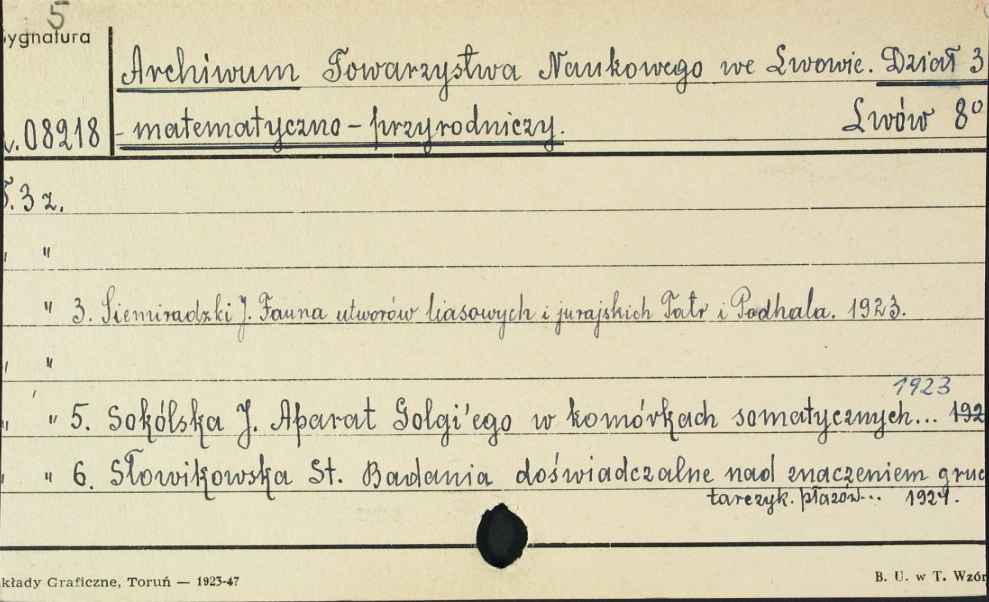 5
ygnatura
Archiwum Towarzystwa Naukowego we Lwowie. Dział 3
08218 - matematyczno - przyrodniczy. Lwów 8º
T. 3 z.
" "
" 3. Siemiradzki J. Fauna utworów liasowych i jurajskich Tatr i Podhala. 1923.
" "
1923
" " 5. Sokólska J. Aparat Golgi'ego w komórkach somatycznych... 192
" " 6. Słowikowska St. Badania doświadczalne nad znaczeniem gruc
tarczyk. płazów... 1924.
kłady Graficzne, Toruń — 1923-47
B. U. w T. Wzór